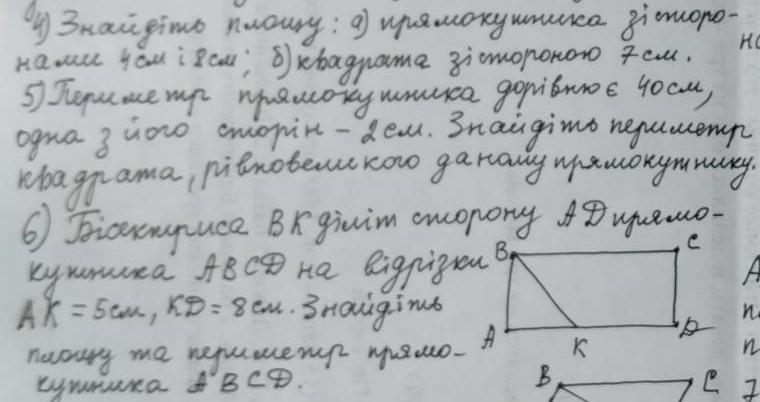 4) Знайдіть площу: а) прямокутника зі сторо-
нами 4 см і 8 см; б) квадрата зі стороною 7 см.
5) Периметр прямокутника дорівнює 40 см,
одна з його сторін - 2 см. Знайдіть периметр
квадрата, рівновеликого даному прямокутнику.
6) Бісектриса ВК діліт сторону AD прямо-
кутника ABCD на відрізки
АК = 5 см, KD = 8 см. Знайдіть
площу та периметр прямо-
кутника ABCD.
B C
A K D
B C
но
А
п
п
7